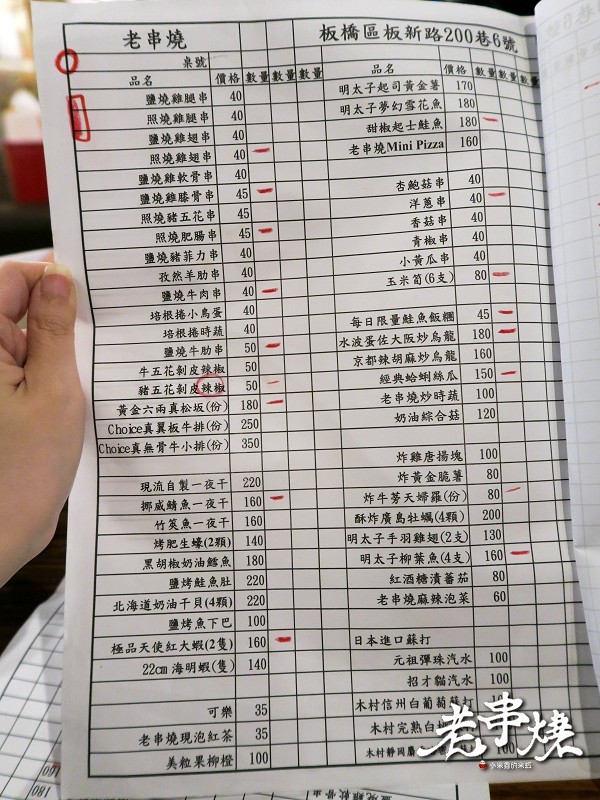 老串燒
板橋區板新路200巷6號
桌號
品名 價格 數量 數量 數量
鹽燒雞腿串 40
照燒雞腿串 40
鹽燒雞翅串 40
照燒雞翅串 40
鹽燒雞軟骨串 40
鹽燒雞膝骨串 45
照燒豬五花串 45
照燒肥腸串 45
鹽燒豬菲力串 40
孜然羊肋串 40
鹽燒牛肉串 40
培根捲小鳥蛋 40
培根捲時蔬 40
鹽燒牛肋串 50
牛五花剝皮辣椒 50
豬五花剝皮辣椒 50
黃金六兩真松坂(份) 180
Choice真翼板牛排(份) 250
Choice真無骨牛小排(份) 350
現流自製一夜干 220
挪威鯖魚一夜干 160
竹筴魚一夜干 160
烤肥生蠔(2顆) 140
黑胡椒奶油鱈魚 180
鹽烤鮭魚肚 220
北海道奶油干貝(4顆) 220
鹽烤魚下巴 100
極品天使紅大蝦(2隻) 160
22cm海明蝦(隻) 140
可樂 35
老串燒現泡紅茶 35
美粒果柳橙 100
品名 價格 數量 數量 數量
明太子起司黃金薯 170
明太子夢幻雪花魚 180
甜椒起士鮭魚 180
老串燒Mini Pizza 160
杏鮑菇串 40
洋蔥串 40
香菇串 40
青椒串 40
小黃瓜串 40
玉米筍(6支) 80
每日限量鮭魚飯糰 45
水波蛋佐大阪炒烏龍 180
京都辣胡麻炒烏龍 160
經典蛤蜊絲瓜 150
老串燒炒時蔬 100
奶油綜合菇 120
炸雞唐揚塊 100
炸黃金脆薯 80
炸牛蒡天婦羅(份) 80
酥炸廣島牡蠣(4顆) 200
明太子手羽雞翅(2支) 130
明太子柳葉魚(4支) 160
紅酒糖漬番茄 80
老串燒麻辣泡菜 60
日本進口蘇打
元祖彈珠汽水 100
招才貓汽水 100
木村信州白葡萄蘇打
木村完熟白
木村靜岡
老串燒